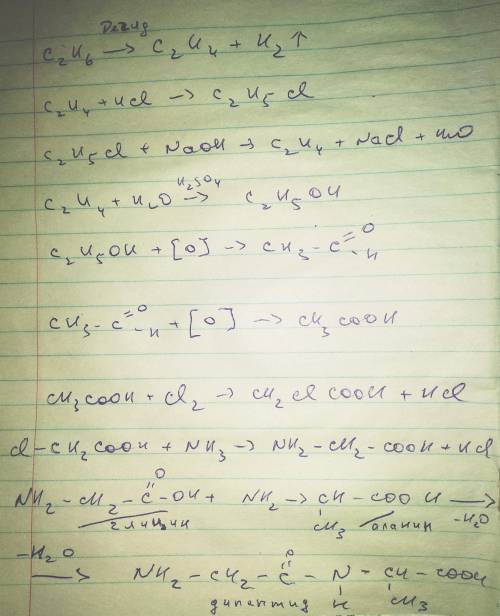 Дегид
C₂H₆ → C₂H₄ + H₂↑
C₂H₄ + HCl → C₂H₅Cl
C₂H₅Cl + NaOH → C₂H₄ + NaCl + H₂O
H₂SO₄
C₂H₄ + H₂O → C₂H₅OH
C₂H₅OH + [O] → CH₃-C=O-H
CH₃-C=O-H + [O] → CH₃COOH
CH₃COOH + Cl₂ → CH₂ClCOOH + HCl
Cl-CH₂COOH + NH₃ → NH₂-CH₂-COOH + HCl
O
NH₂-CH₂-C-OH + NH₂→CH-COOH →
глицин CH₃ аланин -H₂O
-H₂O O
→ NH₂-CH₂-C-N-CH-COOH
дипептид H CH₃